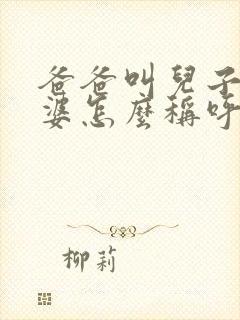 爸爸叫兒子
婆怎麼稱呼
柳莉